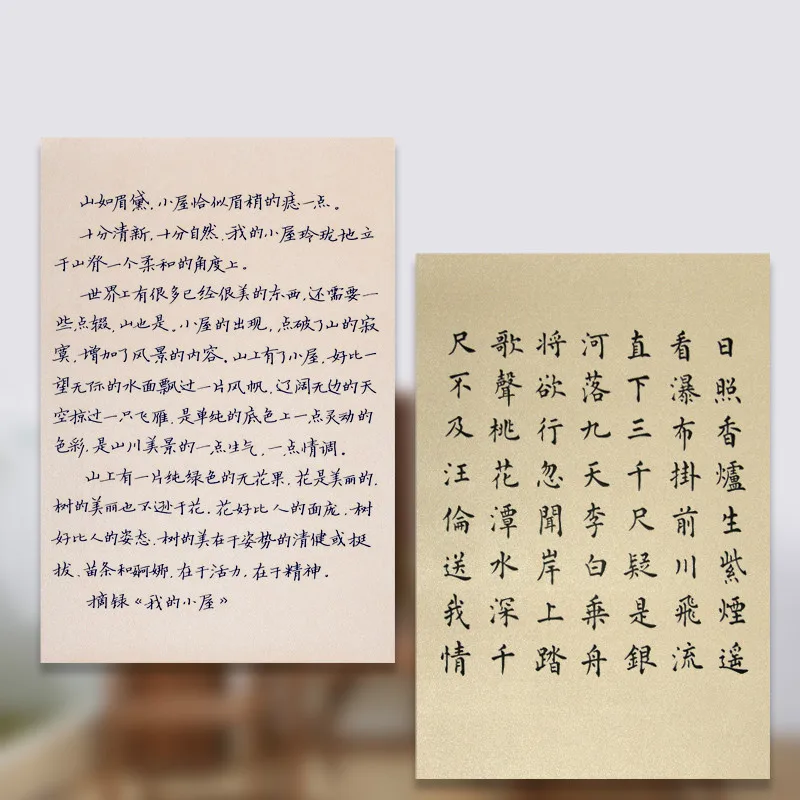 山如眉黛,小屋恰似眉梢的痣一点。
十分清新,十分自然,我的小屋玲珑地立
于山脊一个柔和的角度上。
世界上有很多已经很美的东西,还需要一
些点缀,山也是。小屋的出现,点破了山的寂
寞,增加了风景的内容。山上有了小屋,好比一
望无际的水面飘过一片风帆,辽阔无边的天
空掠过一只飞雁,是单纯的底色上一点灵动的
色彩,是山川美景的一点生气,一点情调。
山上有一片纯绿色的无花果,花是美丽的,
树的美丽也不逊于花。花好比人的面庞,树
好比人的姿态。树的美在于姿势的清健或挺
拔、苗条和婀娜,在于活力,在于精神。
摘录《我的小屋》
日照香爐生紫煙遥
看瀑布掛前川飛流
直下三千尺疑是銀
河落九天李白乘舟
将欲行忽聞岸上踏
歌聲桃花潭水深千
尺不及汪倫送我情